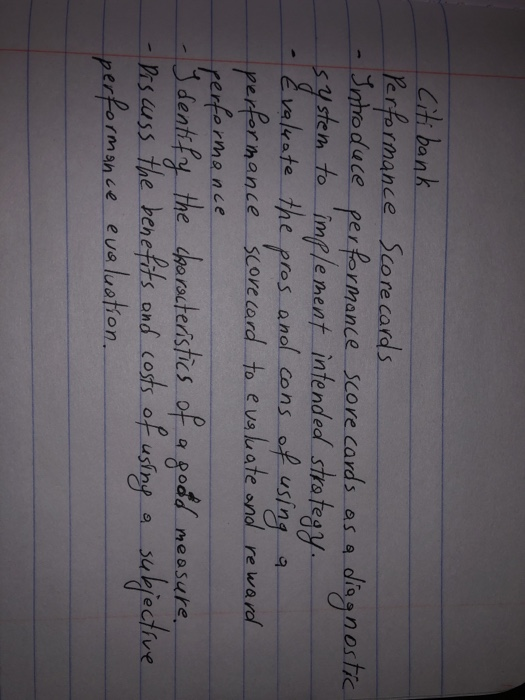 Citibank
Performance Scorecards
- Introduce performance scorecards as a diagnostic
system to implement intended strategy.
- Evaluate the pros and cons of using a
performance scorecard to evaluate and reward
performance
- Identify the characteristics of a good measure.
- Discuss the benefits and costs of using a subjective
performance evaluation.